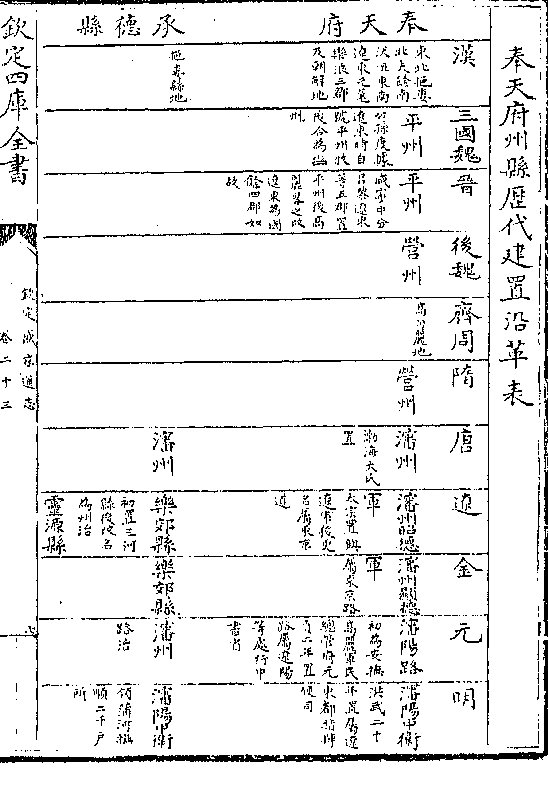 奉天府州縣歴代建置沿革表
漢
三國魏
晉
後魏
齊周
隋
唐
遼
金
元
明
奉天府
東北挹婁
北夫餘南
沃沮東南
樂浪三郡
及朝鮮地
平州
公孫度據
遼東時自
號平州牧
後合為幽
州
平州
咸寧中分
昌黎遼東
等五郡置
平州後高
遼東為國
餘四郡如
故
營州
高句麗地
營州
瀋州
渤海大氏
置
瀋州昭德
軍
太宗置興
遼軍後更
名屬東京
道
瀋州顯德
軍
屬東京路
瀋陽路
初為安撫
高麗軍民
總管府元
貞二年置
路屬遼陽
等處行中
書省
瀋陽中衛
洪武二十
年置屬遼
東都指揮
使司
承德縣
挹婁縣地
瀋州
樂郊縣
初置三河
縣後改名
為州治
靈源縣
樂郊縣
瀋州
路治
瀋陽中衛
領蒲河撫
順二千户
所
欽定四庫全書
欽定盛京通志
卷二十三